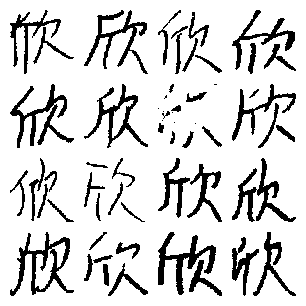 欣欣欣欣
欣欣欣欣
欣欣欣欣
欣欣欣欣